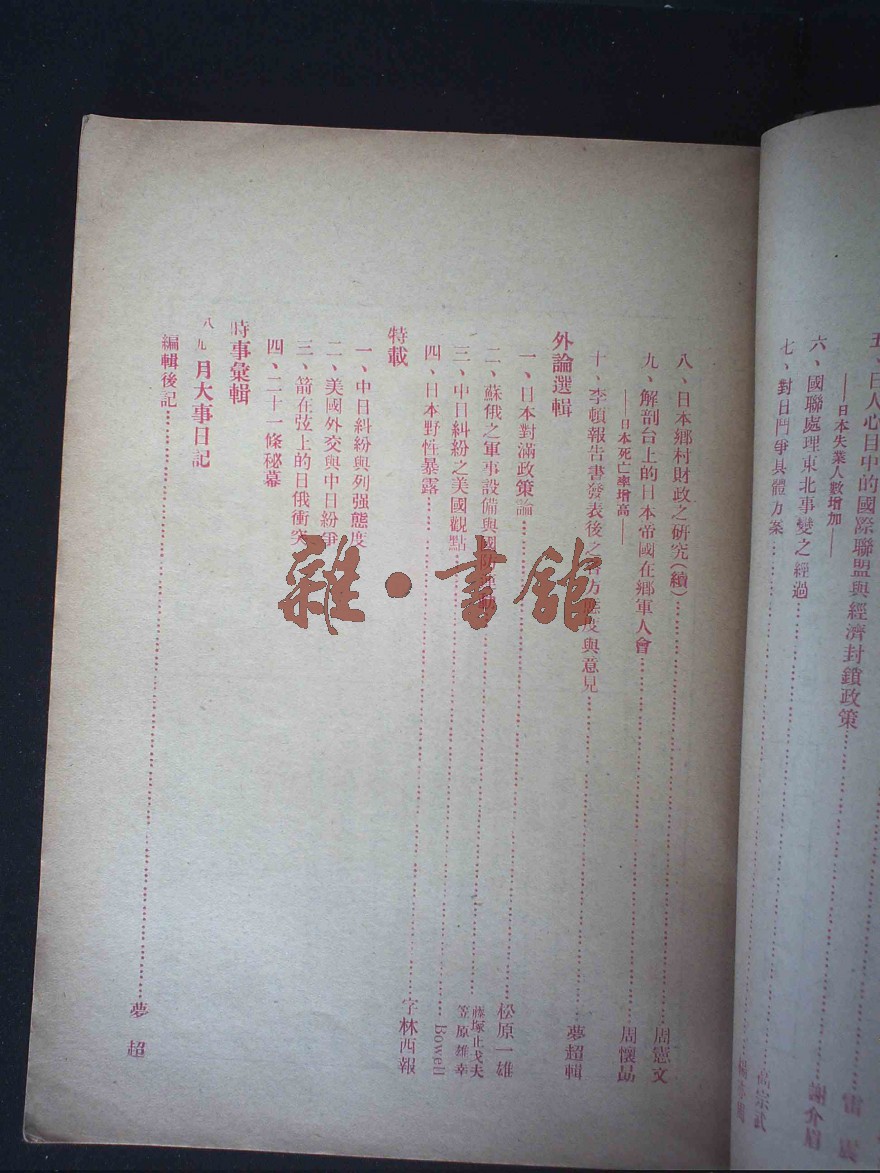 五、日人心目中的國際聯盟與經濟封鎖政策……雷震
——日本失業人數增加——
六、國聯處理東北事變之經過……謝介眉
七、對日鬥爭具體方案……高宗武
八、日本鄉村財政之研究(續)……周憲文
九、解剖台上的日本帝國在鄉軍人會……周懷勗
——日本死亡率增高——
十、李頓報告書發表後之 方態度與意見……夢超輯
外論選輯
一、日本對滿政策論……松原一雄
二、蘇俄之軍事設備與國防……藤塚止戈夫
三、中日糾紛之美國觀點……笠原雄幸
Bowell
四、日本野性暴露……字林西報
特載
一、中日糾紛與列强態度
二、美國外交與中日紛爭
三、箭在弦上的日俄衝突
四、二十一條秘幕
時事彙輯
八九月大事日記
編輯後記……夢超
雜·書館